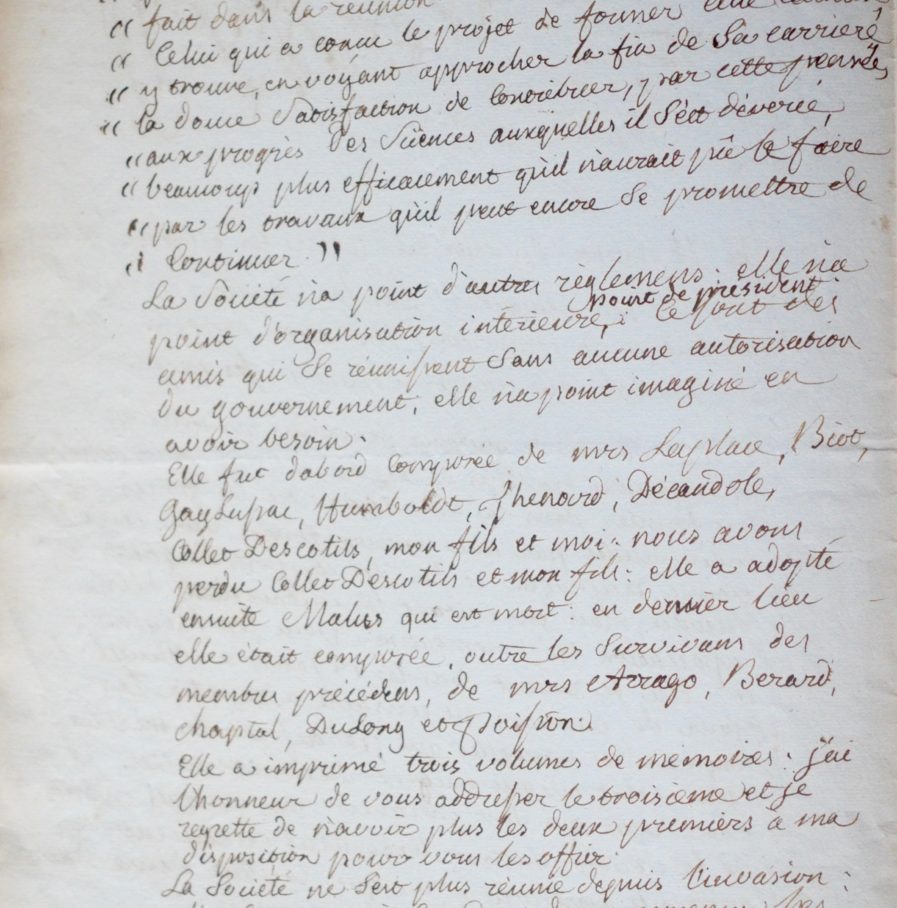 “ fait dans la réunion
“ Celui qui a conçu le projet de former une
“ y trouve, en voyant approcher la fin de sa carriere
“ la douce Satisfaction de Contribuer, par cette pensée,
“ aux progrès des Sciences auxquelles il s'est dévoué,
“ beaucoup plus efficacement qu'il n'aurait pû le faire
“ par les travaux qu'il peut encore se promettre de
“ Continuer. ”
La Société n'a point d'autres règlemens: elle n'a
point de président
point d'organisation intérieure, : Ce sont des
amis qui se réunissent Sans aucune autorisation
du gouvernement; elle n'a point imaginé en
avoir besoin.
Elle fut d'abord Composée de mrs Laplace, Biot,
Gay Lussac, Humboldt, Thenard, Décandole,
Collet Descotils, mon fils et moi: nous avons
perdu Collet Descotils et mon fils: elle a adopté
ensuite Malus qui est mort: en dernier lieu
elle était composée, outre les Survivans des
membres précédens, de mrs Arrago, Berard,
Chaptal, Dulong et Poisson.
Elle a imprimé trois volumes de mémoires: j'ai
l'honneur de vous addresser le troisieme et je
regrette de n'avoir plus les deux premiers à ma
disposition pour vous les offrir.
La Société ne s'est plus réunie depuis l'invasion: